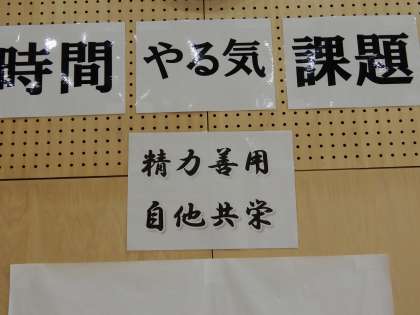 時間 やる気 課題
精力善用
自他共栄